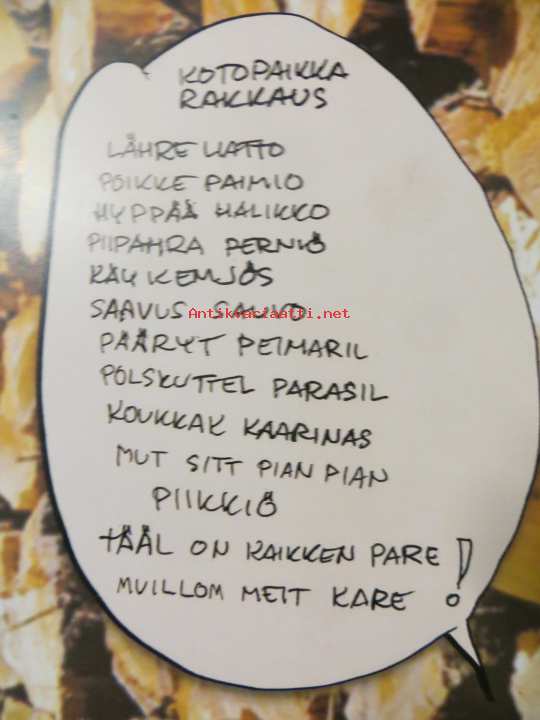 KOTOPAIKKA
RAKKAUS
LÄHRE LIATTO
POIKKE PAIMIO
HYPPÄÄ HALIKKO
PIIPAHRA PERNIÖ
KÄY KEMJÖS
SAAVUS SAUVO
Antikvariaatti.net
PÄÄRYT PEIMARIL
POLSKUTTEL PARASIL
KOUKKAK KAARINAS
MUT SITT PIAN PIAN
PIIKKIÖ
TÄÄL ON KAIKKEN PARE
MUILLOM MEIT KARE !